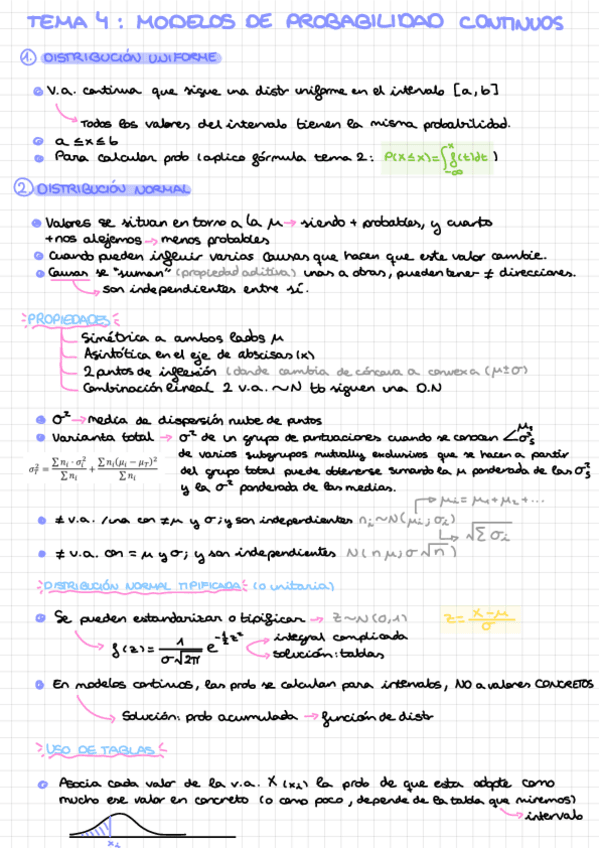 TEMA 4 : MODELOS DE PROBABILIDAD CONTINUOS
1. DISTRIBUCIÓN UNIFORME
V.a. continua que sigue una distr uniforme en el intervalo [a, b]
Todos los valores del intervalo tienen la misma probabilidad.
a ≤ x ≤ b
Para calcular prob (aplico fórmula tema 2: P(X ≤ x) = ∫_{-∞}^{x} f(t)dt )
2. DISTRIBUCIÓN NORMAL
Valores se situan en torno a la μ → siendo + probables, y cuanto
+ nos alejemos → menos probables
Cuando pueden influir varias causas que hacen que este valor cambie.
Causas se "suman" (propiedad aditiva) unas a otras, pueden tener ≠ direcciones.
son independientes entre sí.
PROPIEDADES
Simétrica a ambos lados μ
Asintótica en el eje de abscisas (x)
2 puntos de inflexión (donde cambia de cóncava a convexa (μ±σ)
Combinación lineal 2 v.a. ~ N tb siguen una D.N
σ² → media de dispersión nube de puntos
Varianza total → σ² de un grupo de puntuaciones cuando se conocen μs σ²s
de varios subgrupos mutually exclusivos que se hacen a partir
σ²T = Σ ni · σi² / Σ ni + Σ ni(μi − μT)² / Σ ni
del grupo total puede obtenerse sumando la μ ponderada de las σ²s
y la σ² ponderada de las medias.
μi = μ1 + μ2 + ...
≠ v.a. / una con ≠ μ y σ; y son independientes ni ~ N(μi ; σi)
√Σ σi
≠ v.a. con = μ y σ; y son independientes N(n μ; σ √n)
DISTRIBUCIÓN NORMAL TIPIFICADA (o unitaria)
Se pueden estandarizar o tipificar → Z ~ N(0,1) z = x − μ / σ
f(z) = 1 / σ√2π e^{-½z²} integral complicada
solución: tablas
En modelos continuos, las prob se calculan para intervalos, NO a valores CONCRETOS
Solución: prob acumulada → función de distr
USO DE TABLAS
Asocia cada valor de la v.a. X (xi) la prob de que esta adopte como
mucho ese valor en concreto (o como poco, depende de la tabla que miremos)
intervalo
xi